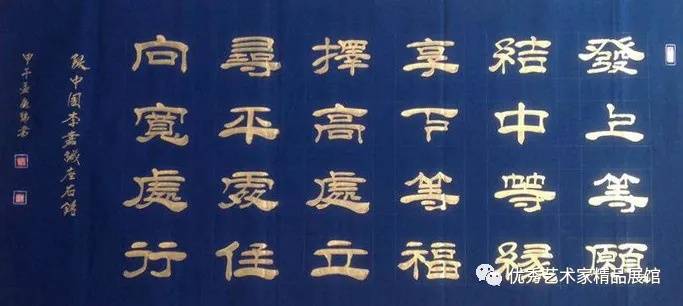 發上等願
結中等緣
享下等福
擇高處立
尋平處住
向寬處行
中國李嘉誠座右銘
甲午書
优秀艺术家精品展馆